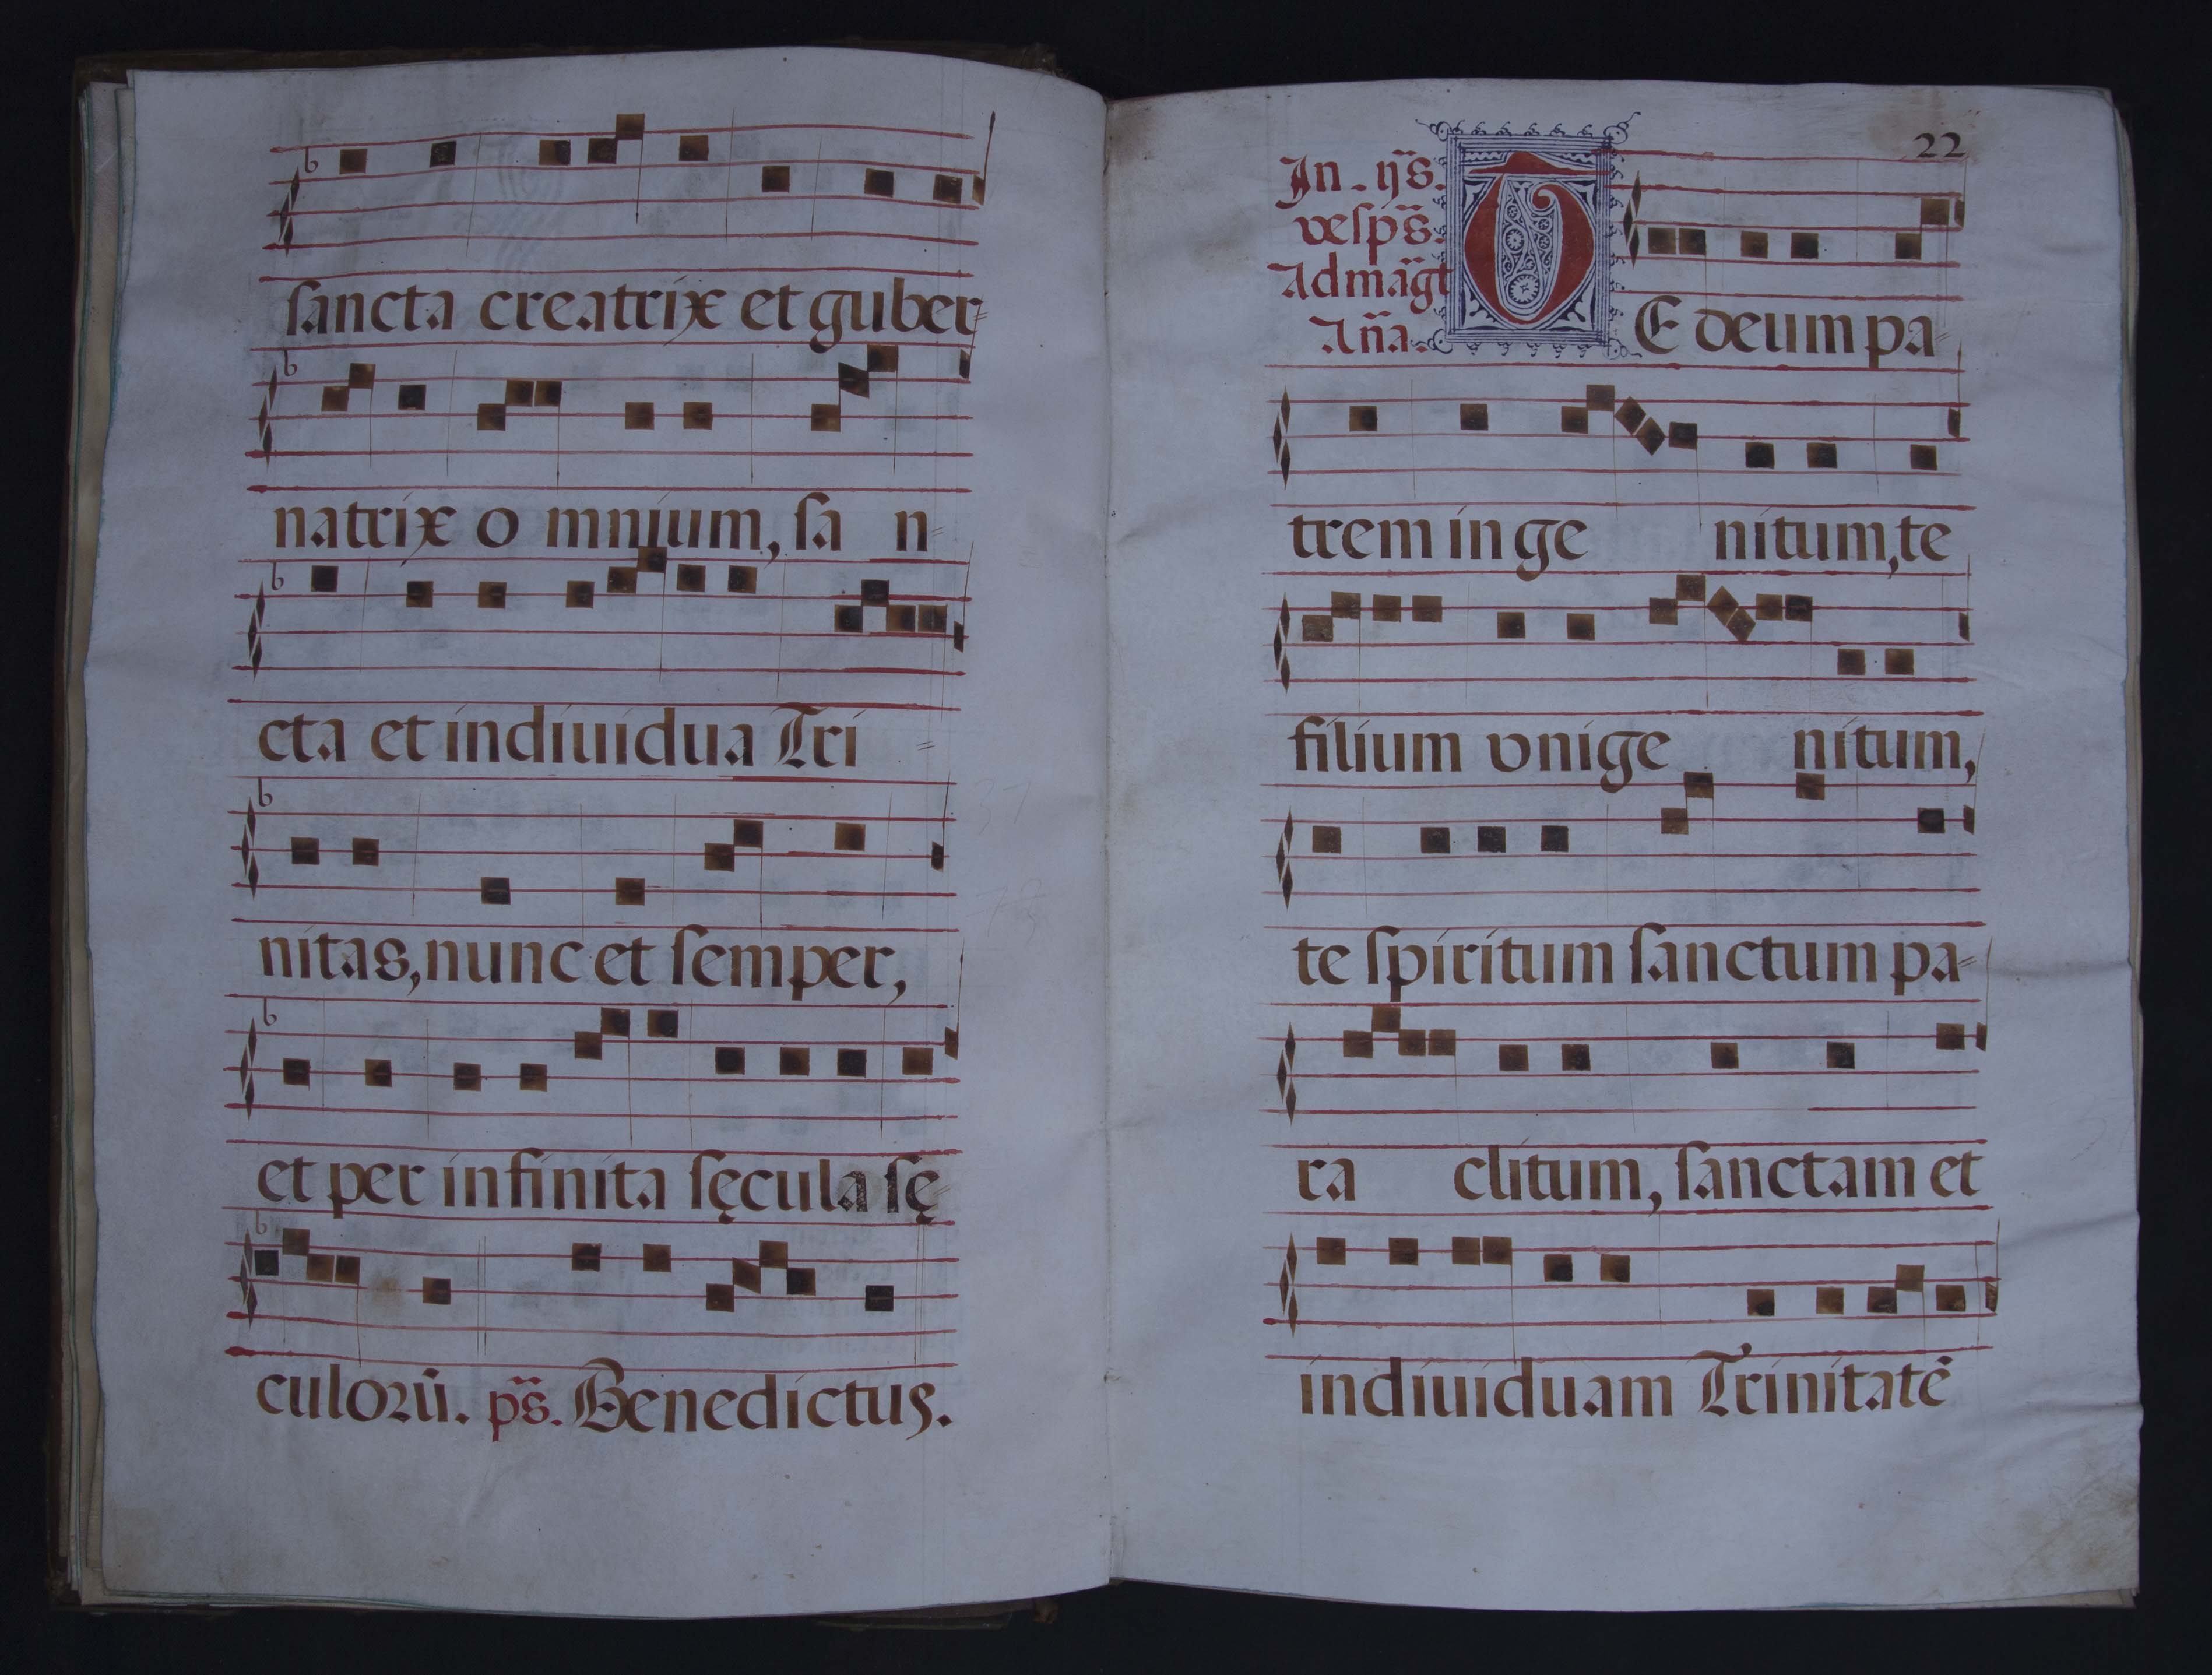 sancta creatrix et guber=
natrix o mnium, sa n=
cta et indiuidua Tri =
nitas, nunc et semper,
et per infinita sęcula sę=
culorū. ps̄. Benedictus.
22
In. ijs̄.
vesps̄.
Ad mag̃t
Añа.
TE deum pa=
trem in ge nitum, te
filium vnige nitum,
te spiritum sanctum pa=
ra clitum, sanctam et
indiuiduam Trinitatē